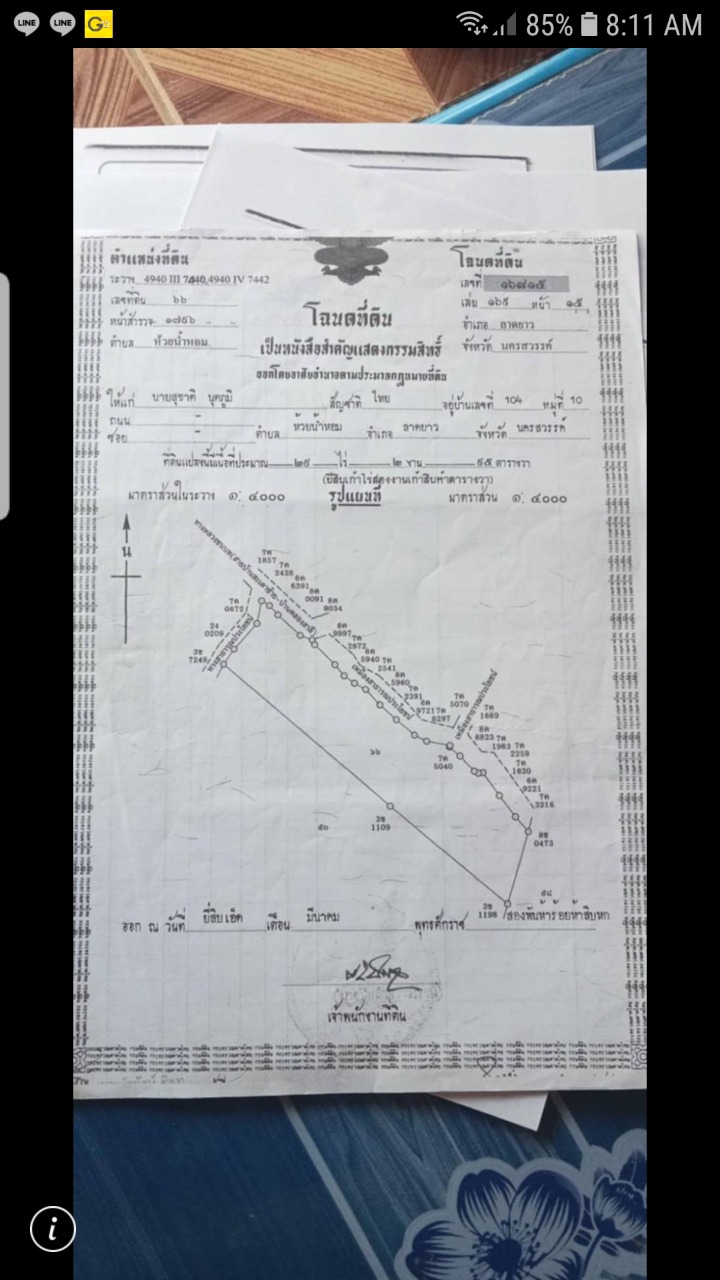 LINE LINE G 85% 8:11 AM
ตำแหน่งที่ดิน
ระวาง 4940 III 7440,4940 IV 7442
เลขที่ดิน ๖๖
หน้าสำรวจ ๑๗๙๖
ตำบล ห้วยน้ำหอม
โฉนดที่ดิน
เลขที่ ๑๖๘๑๕
เล่ม ๑๖๙ หน้า ๑๕
อำเภอ ลาดยาว
จังหวัด นครสวรรค์
โฉนดที่ดิน
เป็นหนังสือสำคัญแสดงกรรมสิทธิ์
ออกโดยอาศัยอำนาจตามประมวลกฎหมายที่ดิน
ให้แก่ นายสุชาติ สัญชาติ ไทย อยู่บ้านเลขที่ 104 หมู่ที่ 10
ถนน -
ซอย - ตำบล ห้วยน้ำหอม อำเภอ ลาดยาว จังหวัด นครสวรรค์
ที่ดินแปลงนี้มีเนื้อที่ประมาณ ๒๙ ไร่ ๒ งาน ๙๕ ตารางวา
(ยี่สิบเก้าไร่สองงานเก้าสิบห้าตารางวา)
มาตราส่วนในระวาง ๑: ๔๐๐๐ รูปแผนที่ มาตราส่วน ๑: ๔๐๐๐
น
7ค
1857
7ค
5428
8ค
6391
8ค
0091
8ค
9034
7ค
0672
2ง
0209
3ช
7249
ทางสาธารณประโยชน์
6ค
9997
7ค
2672
8ค
5940
7ค
2541
8ค
5960
7ค
2391
6ค
9721
7ค
8297
เหมืองสาธารณประโยชน์
7ค
5070
เหมืองสาธารณประโยชน์
7ค
1689
8ค
8823
7ค
1983
7ค
2259
7ค
1620
6ค
9221
7ค
3216
7ค
5040
๖๖
3ช
1109
๕๐
8ช
0473
๕๘
3ช
1198
ออก ณ วันที่ ยี่สิบเอ็ด เดือน มีนาคม พุทธศักราช สองพันห้าร้อยห้าสิบหก
เจ้าพนักงานที่ดิน
i